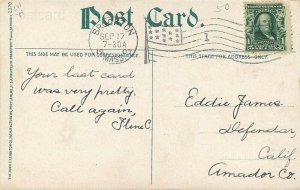 Post Card.
SEP 17
7-30A
MASS.
1
50
THIS SIDE MAY BE USED FOR CORRESPONDENCE.
THIS SPACE FOR ADDRESS ONLY.
Your last card
was very pretty.
Call again,
Eddie James
Defender,
Calif.
Amador Co.